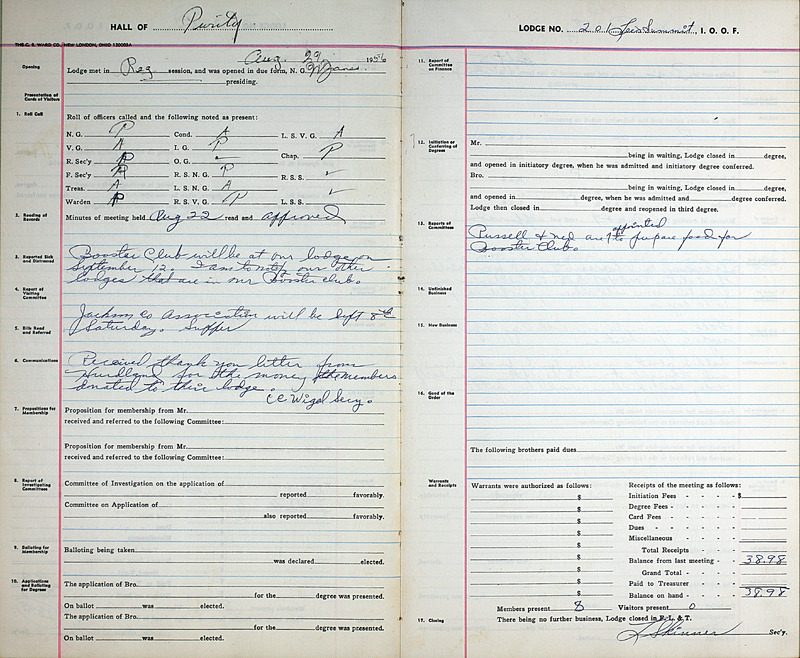 HALL OF Purity
THE C. E. WARD CO., NEW LONDON, OHIO
Aug. 29, 1956
Opening
Lodge met in Reg session, and was opened in due form, N. G. W Jones
presiding.
Presentation of
Cards of Visitors
1. Roll Call
Roll of officers called and the following noted as present:
N. G. P Cond. A L. S. V. G. A
V. G. A I. G. P Chap. P
R. Sec'y O. G. -
F. Sec'y R. S. N. G. P R. S. S. ✓
Treas. A L. S. N. G. A
Warden P R. S. V. G. P L. S. S. ✓
2. Reading of
Records
Minutes of meeting held Aug 22 read and approved
3. Reported Sick
and Distressed
Booster Club will be at our lodge on
September 12. I am to notify our other
lodges that are in our Booster Club.
4. Report of
Visiting
Committee
Jackson Co Association will be Sept 8th
Saturday. Supper
5. Bills Read
and Referred
6. Communications
Received thank you letter from
Hurdland for the money the members
donated to their lodge.
CC Wigel Secy.
7. Propositions for
Membership
Proposition for membership from Mr.
received and referred to the following Committee:
Proposition for membership from Mr.
received and referred to the following Committee:
8. Report of
Investigating
Committees
Committee of Investigation on the application of
reported favorably.
Committee on Application of
also reported favorably.
9. Balloting for
Membership
Balloting being taken
was declared elected.
10. Applications
and Balloting
for Degrees
The application of Bro.
for the degree was presented.
On ballot was elected.
The application of Bro.
for the degree was presented.
On ballot was elected.
LODGE NO. 201 Lees Summit, I. O. O. F.
11. Report of
Committee
on Finance
12. Initiation or
Conferring of
Degrees
Mr.
being in waiting, Lodge closed in degree,
and opened in initiatory degree, when he was admitted and initiatory degree conferred.
Bro.
being in waiting, Lodge closed in degree,
and opened in degree, when he was admitted and degree conferred.
Lodge then closed in degree and reopened in third degree.
13. Reports of
Committees
appointed
Russell & Ned are to prepare food for
Booster Club.
14. Unfinished
Business
15. New Business
16. Good of the
Order
The following brothers paid dues
Warrants
and Receipts
Warrants were authorized as follows:
$
$
$
$
$
$
$
$
$
Receipts of the meeting as follows:
Initiation Fees - - - - $
Degree Fees - - - - -
Card Fees - - - -
Dues - - - - -
Miscellaneous - - - -
Total Receipts
Balance from last meeting - 38.98
Grand Total - -
Paid to Treasurer - -
Balance on hand - - - 38.98
Members present 8 Visitors present 0
17. Closing
There being no further business, Lodge closed in F. L. & T.
L Skinner Sec'y.